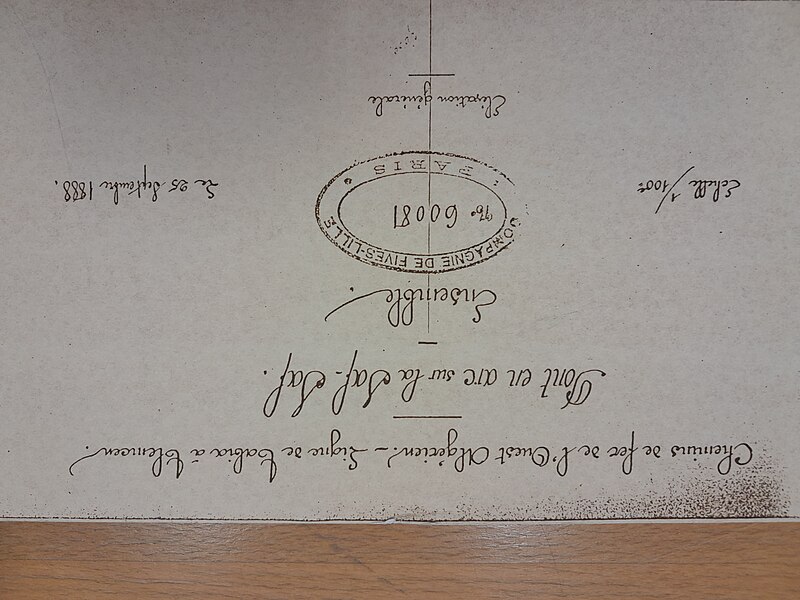 Chemins de fer de l'Ouest Algérien. - Ligne de Tabia à Tlemcen.
Pont en arc sur la Saf-Saf.
Ensemble.
COMPAGNIE DE FIVES-LILLE
No. 60081
PARIS
Echelle 1/100e
Le 25 Septembre 1888.
Élévation générale